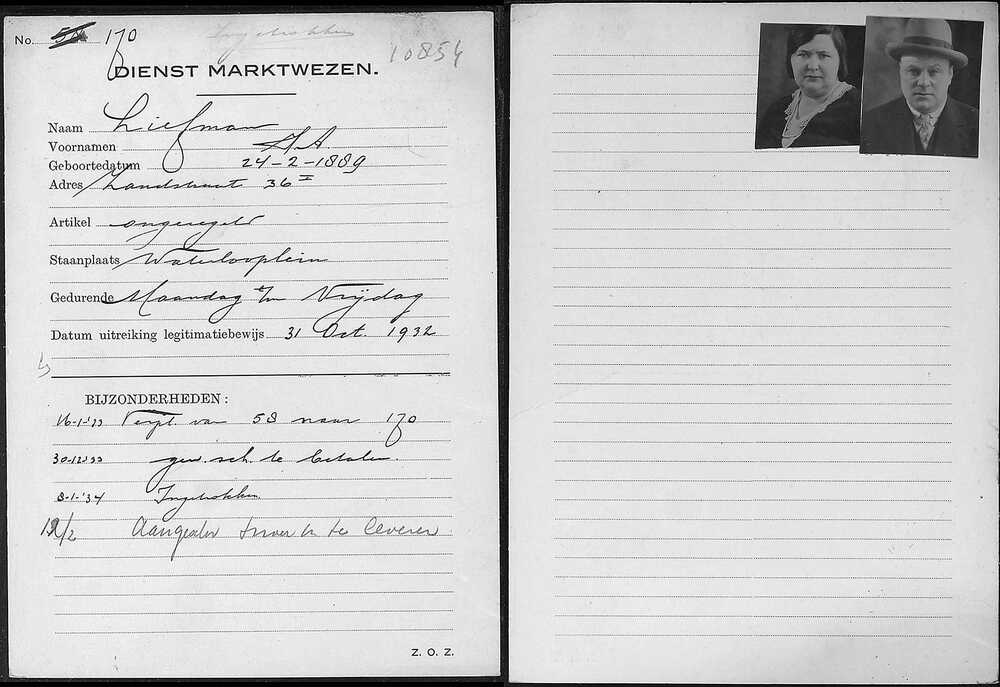 No. 58 170 Ingetrokken
10854
DIENST MARKTWEZEN.
Naam Liefman
Voornamen A.
Geboortedatum 24-2-1889
Adres Zandstraat 36 I
Artikel ongeregeld
Staanplaats Waterlooplein
Gedurende Maandag t/m Vrijdag
Datum uitreiking legitimatiebewijs 31 Oct. 1932
BIJZONDERHEDEN:
16-1-'33 Verpl. van 58 naar 170
30-12-'33 gew. sch. te betalen.
8-1-'34 Ingetrokken
12/2 te leveren
Z. O. Z.